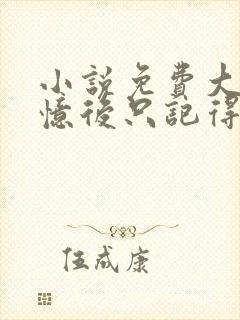 小説免費大
憶後只記得
伍成康